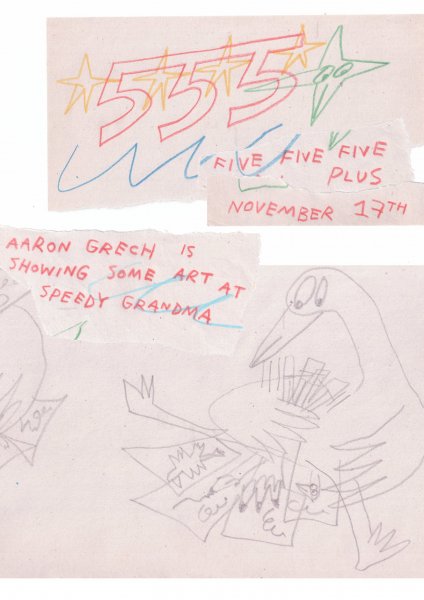 555
FIVE FIVE FIVE
PLUS
NOVEMBER 17TH
AARON GRECH IS
SHOWING SOME ART AT
SPEEDY GRANDMA